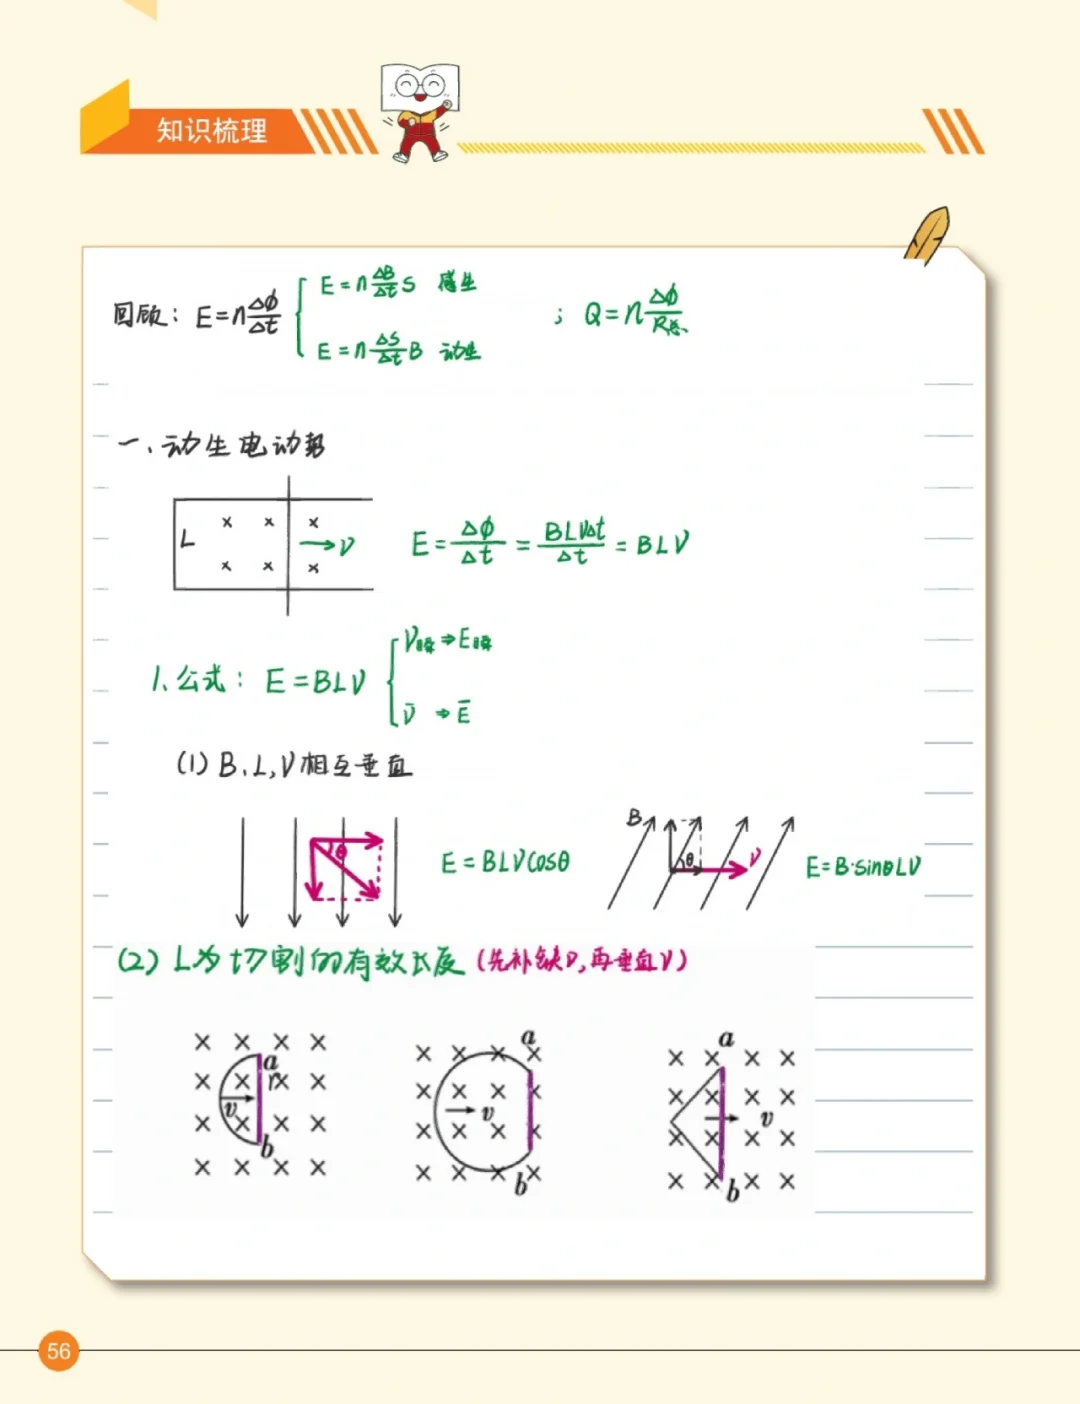 知识梳理
回顾：E=nΔΦ/Δt { E=nΔB/Δt S 感生 ; Q=nΔΦ/R总
E=nΔS/Δt B 动生
一、动生电动势
L × × × → V E=ΔΦ/Δt=BLVΔt/Δt=BLV
× × ×
1、公式：E=BLV { V瞬⇒E瞬
V̄ ⇒ Ē
(1) B、L，V相互垂直
θ E=BLVCosθ B θ V E=B·sinθLV
(2) L为切割的有效长度（先补缺口，再垂直V）
a r v b
a v b
a v b
56